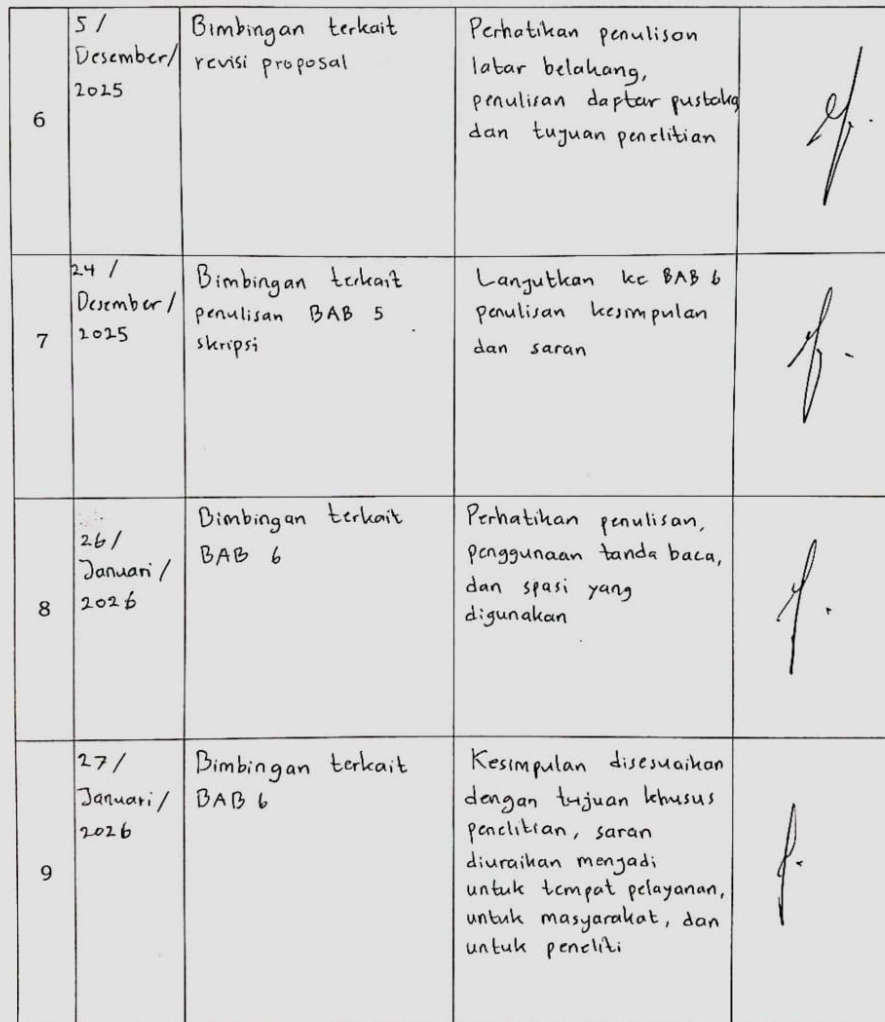 6
5 /
Desember/
2025
Bimbingan terkait
revisi proposal
Perhatikan penulisan
latar belakang,
penulisan daptar pustaka
dan tujuan penelitian
7
24 /
Desember /
2025
Bimbingan terkait
penulisan BAB 5
skripsi
Lanjutkan ke BAB 6
penulisan kesimpulan
dan saran
8
26 /
Januari /
2026
Bimbingan terkait
BAB 6
Perhatikan penulisan,
penggunaan tanda baca,
dan spasi yang
digunakan
9
27 /
Januari /
2026
Bimbingan terkait
BAB 6
Kesimpulan disesuaikan
dengan tujuan khusus
penelitian, saran
diuraikan menjadi
untuk tempat pelayanan,
untuk masyarakat, dan
untuk peneliti